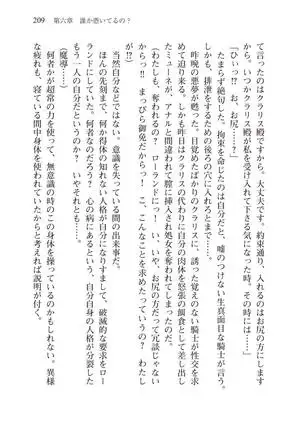 209　第六章　誰か憑いてるの？
て言ったのはクラリス殿ですから。大丈夫です。約束通り、入れるのはお尻の方にします
から。いつかクラリス殿が私を受け入れて下さる気になった時、その時には……」
「ひぃっ!?　お、お尻……!?」
たまらず絶句した。拘束を命じたのは自分だと、嘘のつけない生真面目な騎士が言う。
しかも、排泄をするための後ろの穴に入れろとまで……。
昨晩もそうだった。目覚めたばかりのクラリスに、誘った覚えのない騎士が性交を求
めて迫り来る。しかも昨日はクラリスの代わりに自分の肉体を怒張の餌食として差し出し
たミューネが、アナルと間違われて膣に挿入され処女を奪われてしまったのだ。
（わたしも、奪われるの？　ローランドに……！　い、いや、お尻の方だって冗談じゃない
わ！　まっぴら御免だからっ！　こ、こんなことを求めたっていうの？　わたし
が!?）
当然自分などではない。意識を失っている間の出来事だ。
ほんの先刻まで、何か得体の知れない人格が自分になりすまして、破滅的な要求をロー
ランドにしていた。何者なのだろう？　心の病にあるという、自分自身の人格が分裂した
もう一人の自分だというのか。いやそれとも……。
（魔導……!?）
何者かが超常の力を使って、無意識の時のクラリスに取り憑いているのかもしれない。異様
な疲れも、寝ている間中身体を使われていたからと考えれば説明が付く。